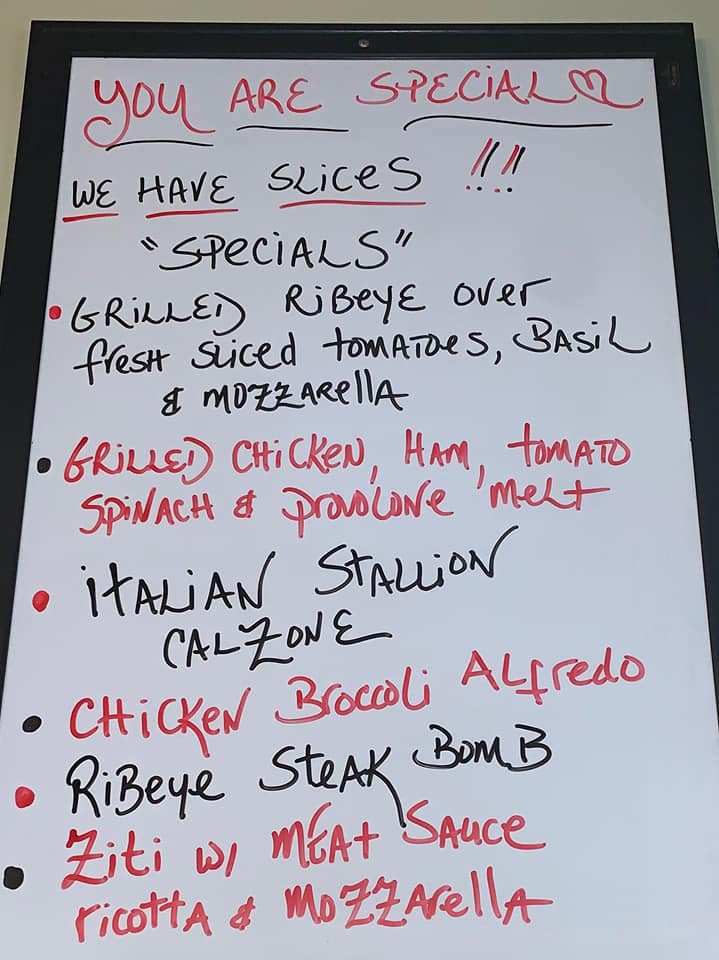 YOU ARE SPECIAL♡
WE HAVE SLICES !!!
"SPECIALS"
• GRILLED RiBEYE over
fresh sliced tomatoes, BASiL
& MOZZARellA
• GRiLLED CHiCKEN, HAM, tomATO
SPiNACH & provolone melt
• iTALiAN STALLiON
CALZONE
• CHiCKEN Broccoli ALfredo
• RiBeye SteAK BOMB
• Ziti w/ MEAt SAUCE
ricottA & MoZZArellA